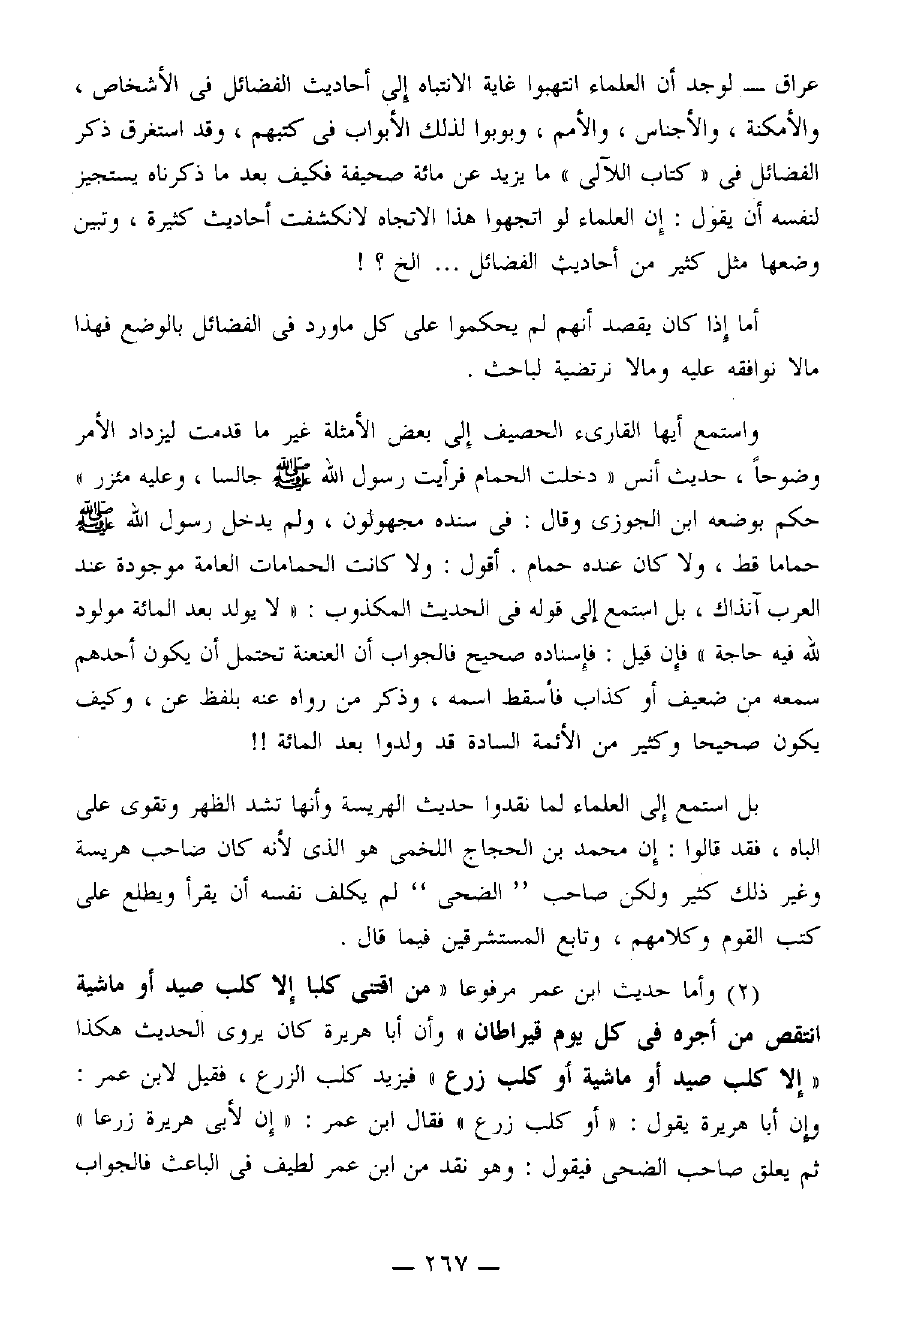 عراق — لوجد أن العلماء انتهبوا غاية الانتباه إلى أحاديث الفضائل فى الأشخاص ،
والأمكنة ، والأجناس ، والأمم ، وبوبوا لذلك الأبواب فى كتبهم ، وقد استغرق ذكر
الفضائل فى « كتاب اللآلى » ما يزيد عن مائة صحيفة فكيف بعد ما ذكرناه يستجيز
لنفسه أن يقول : إن العلماء لو اتجهوا هذا الاتجاه لانكشفت أحاديث كثيرة ، وتبين
وضعها مثل كثير من أحاديث الفضائل ... الخ ؟ !
أما إذا كان يقصد أنهم لم يحكموا على كل ماورد فى الفضائل بالوضع فهذا
مالا نوافقه عليه ومالا نرتضية لباحث .
واستمع أيها القارىء الحصيف إلى بعض الأمثلة غير ما قدمت ليزداد الأمر
وضوحاً ، حديث أنس « دخلت الحمام فرأيت رسول الله ﷺ جالسا ، وعليه مئزر »
حكم بوضعه ابن الجوزى وقال : فى سنده مجهولون ، ولم يدخل رسول الله ﷺ
حماما قط ، ولا كان عنده حمام . أقول : ولا كانت الحمامات العامة موجودة عند
العرب آنذاك ، بل استمع إلى قوله فى الحديث المكذوب : « لا يولد بعد المائة مولود
لله فيه حاجة » فإن قيل : فإسناده صحيح فالجواب أن العنعنة تحتمل أن يكون أحدهم
سمعه من ضعيف أو كذاب فأسقط اسمه ، وذكر من رواه عنه بلفظ عن ، وكيف
يكون صحيحا وكثير من الأئمة السادة قد ولدوا بعد المائة !!
بل استمع إلى العلماء لما نقدوا حديث الهريسة وأنها تشد الظهر وتقوى على
الباه ، فقد قالوا : إن محمد بن الحجاج اللخمى هو الذى لأنه كان صاحب هريسة
وغير ذلك كثير ولكن صاحب ’’ الضحى ‘‘ لم يكلف نفسه أن يقرأ ويطلع على
كتب القوم وكلامهم ، وتابع المستشرقين فيما قال .
(٢) وأما حديث ابن عمر مرفوعا « من اقتنى كلبا إلا كلب صيد أو ماشية
انتقص من أجره فى كل يوم قيراطان » وأن أبا هريرة كان يروى الحديث هكذا
« إلا كلب صيد أو ماشية أو كلب زرع » فيزيد كلب الزرع ، فقيل لابن عمر :
وإن أبا هريرة يقول : « أو كلب زرع » فقال ابن عمر : « إن لأبى هريرة زرعا »
ثم يعلق صاحب الضحى فيقول : وهو نقد من ابن عمر لطيف فى الباعث فالجواب
— ٢٦٧ —